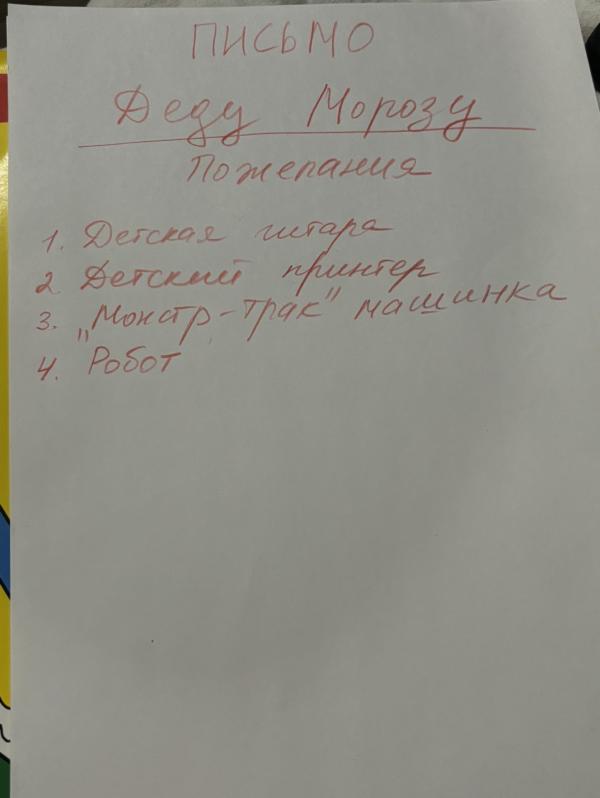 ПИСЬМО
Деду Морозу
Пожелания
1. Детская гитара
2 Детский принтер
3. „Монстр-трак" машинка
4. Робот